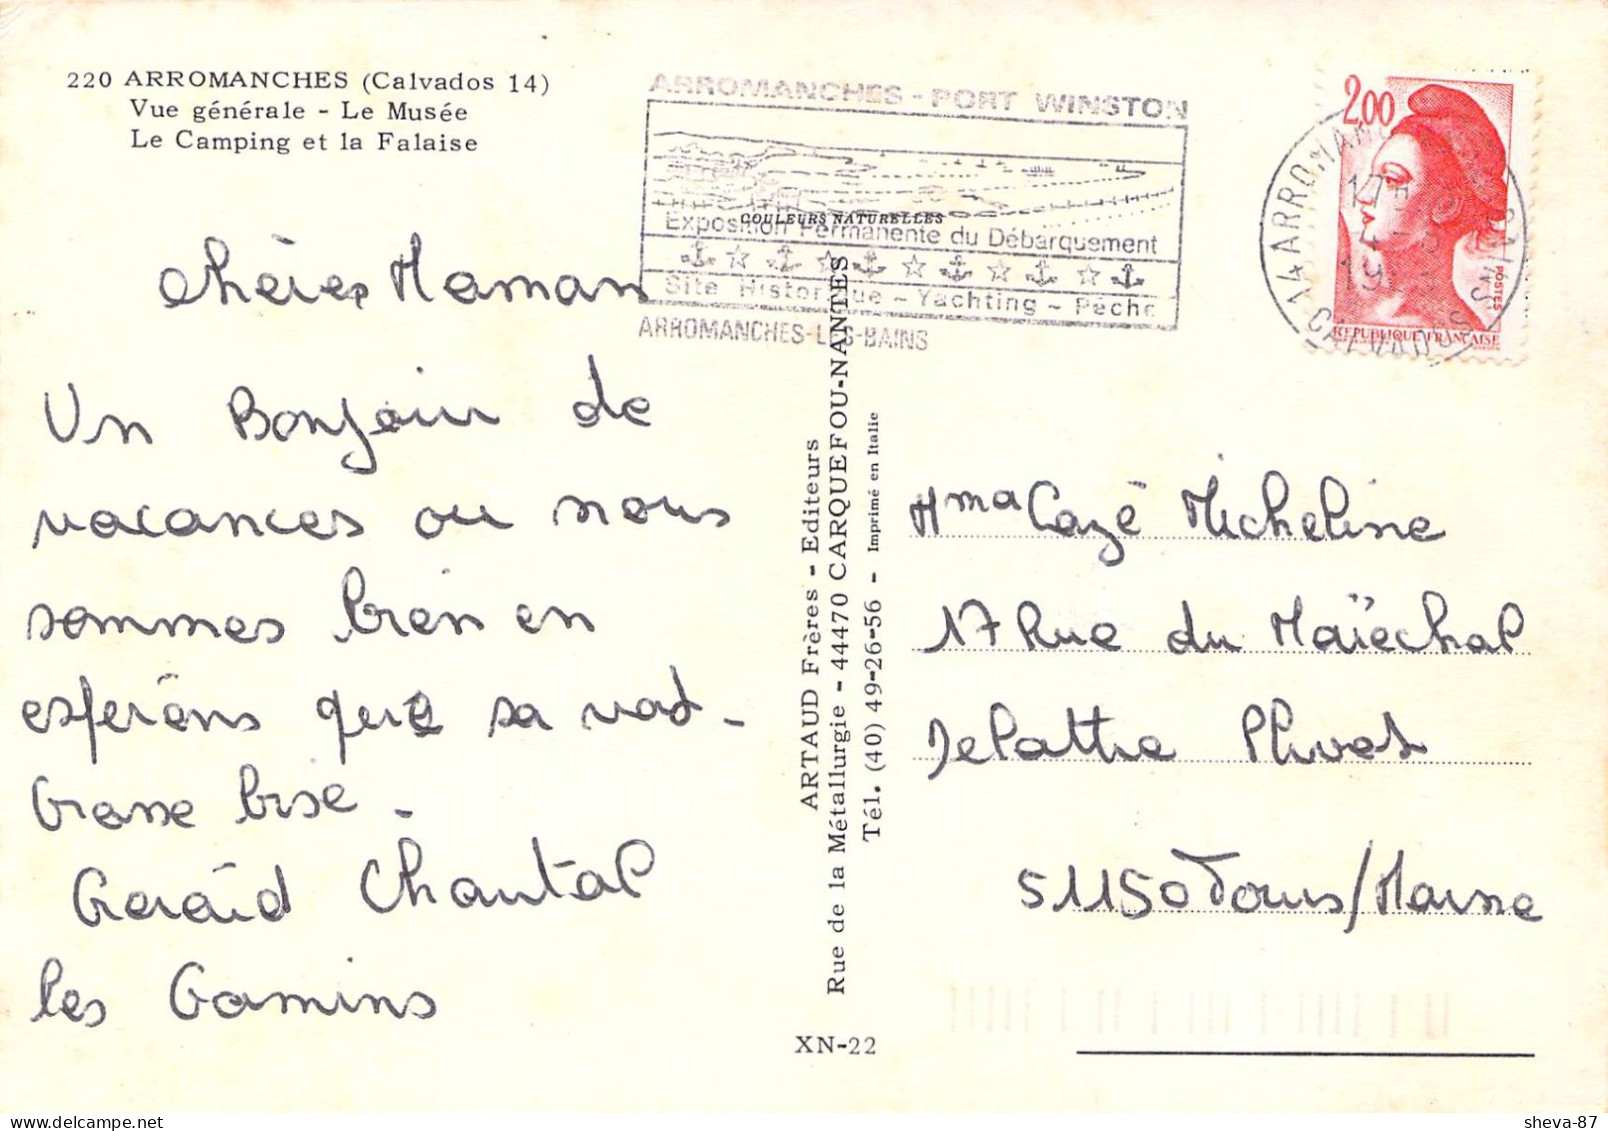 220 ARROMANCHES (Calvados 14)
Vue générale - Le Musée
Le Camping et la Falaise
ARROMANCHES - PORT WINSTON
COULEURS NATURELLES
Exposition Permanente du Débarquement
Site Historique - Yachting - Pêche
ARROMANCHES-LES-BAINS
2,00
POSTES
REPUBLIQUE FRANCAISE
14 ARROMANCHES
CALVADOS
chères Maman
Un Bonjour de
vacances ou nous
sommes bien en
espérons que sa vad -
Grosse bise .
Gérard Chantal
les Gamins
ARTAUD Frères - Editeurs
Rue de la Métallurgie - 44470 CARQUEFOU-NANTES
Tél. (40) 49-26-56 - Imprimé en Italie
XN-22
Mma Cazé Micheline
17 Rue du Maréchal
Delattre Plivot
51150 Tours/Marne
sheva-87